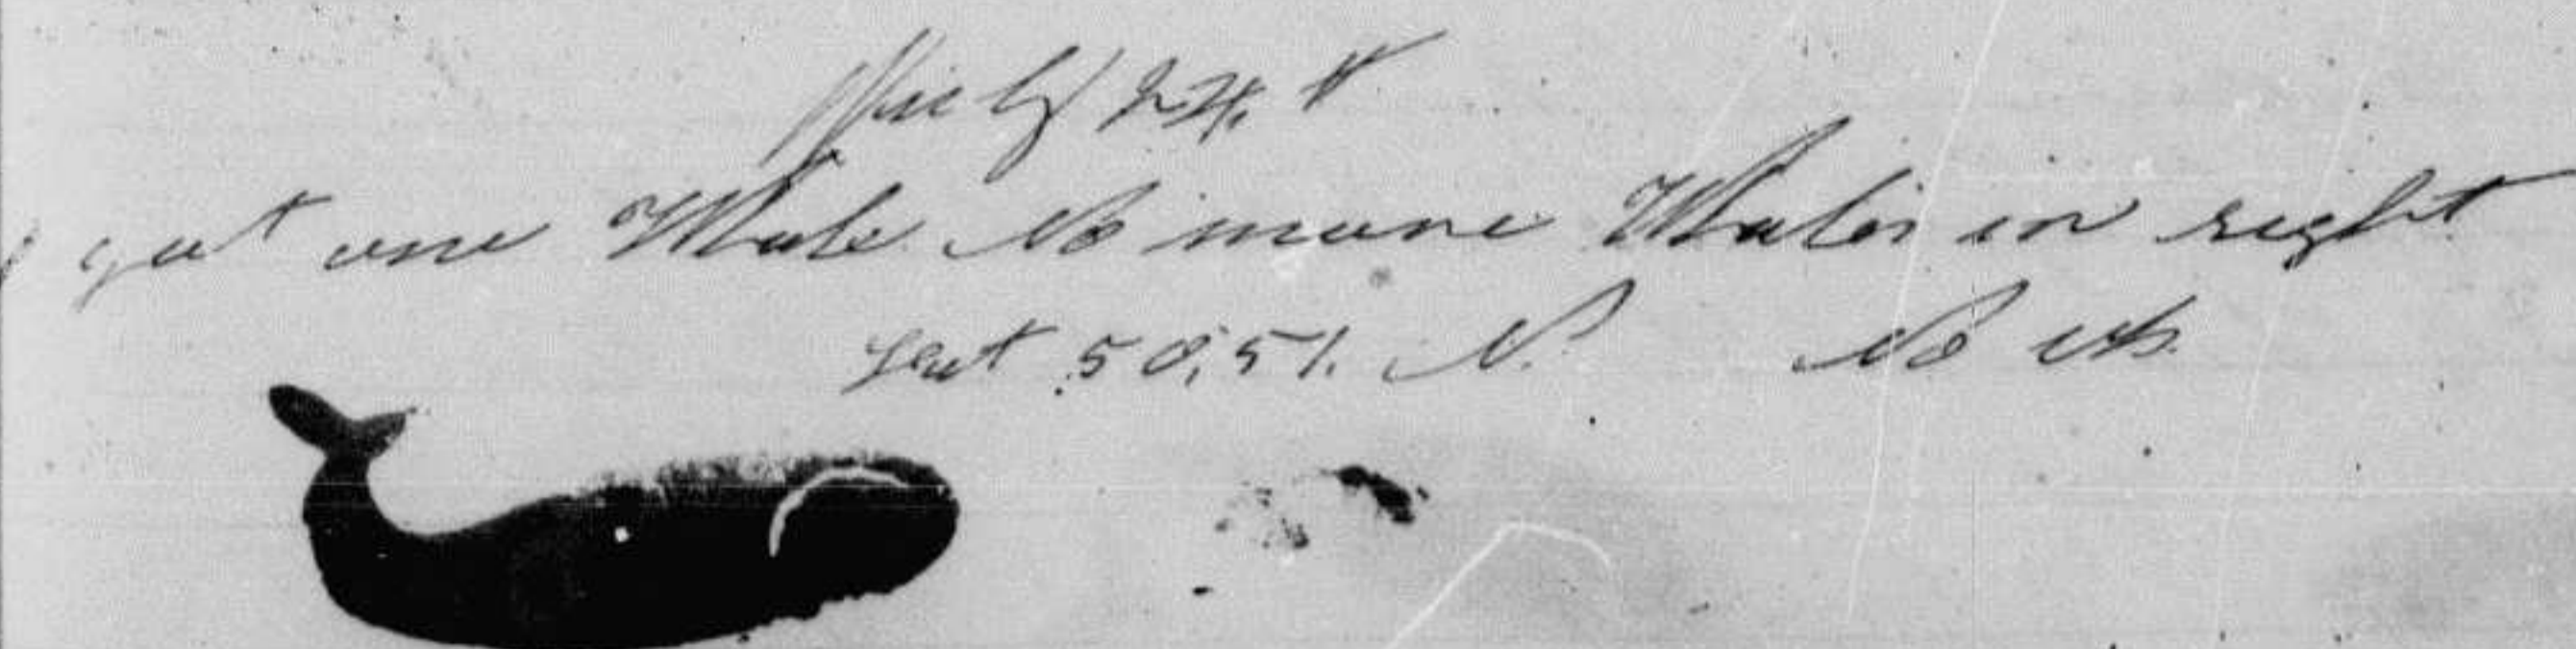 July 24th
got one Whale No more Whales in sight
Lat 50,51. N. No Ob.